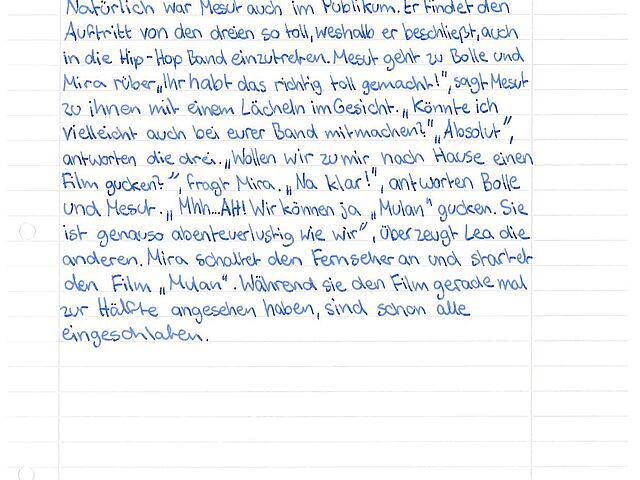 Natürlich war Mesut auch im Publikum. Er findet den
Auftritt von den dreien so toll, weshalb er beschließt, auch
in die Hip-Hop Band einzutreten. Mesut geht zu Bolle und
Mira rüber „Ihr habt das richtig toll gemacht!", sagt Mesut
zu ihnen mit einem Lächeln im Gesicht. „Könnte ich
vielleicht auch bei eurer Band mitmachen?" „Absolut",
antworten die drei. „Wollen wir zu mir nach Hause einen
Film gucken?", fragt Mira. „Na klar!", antworten Bolle
und Mesut. „Mhh...Ah! Wir können ja „Mulan" gucken. Sie
ist genauso abenteuerlustig wie wir", überzeugt Lea die
anderen. Mira schaltet den Fernseher an und startet
den Film „Mulan". Während sie den Film gerade mal
zur Hälfte angesehen haben, sind schon alle
eingeschlafen.